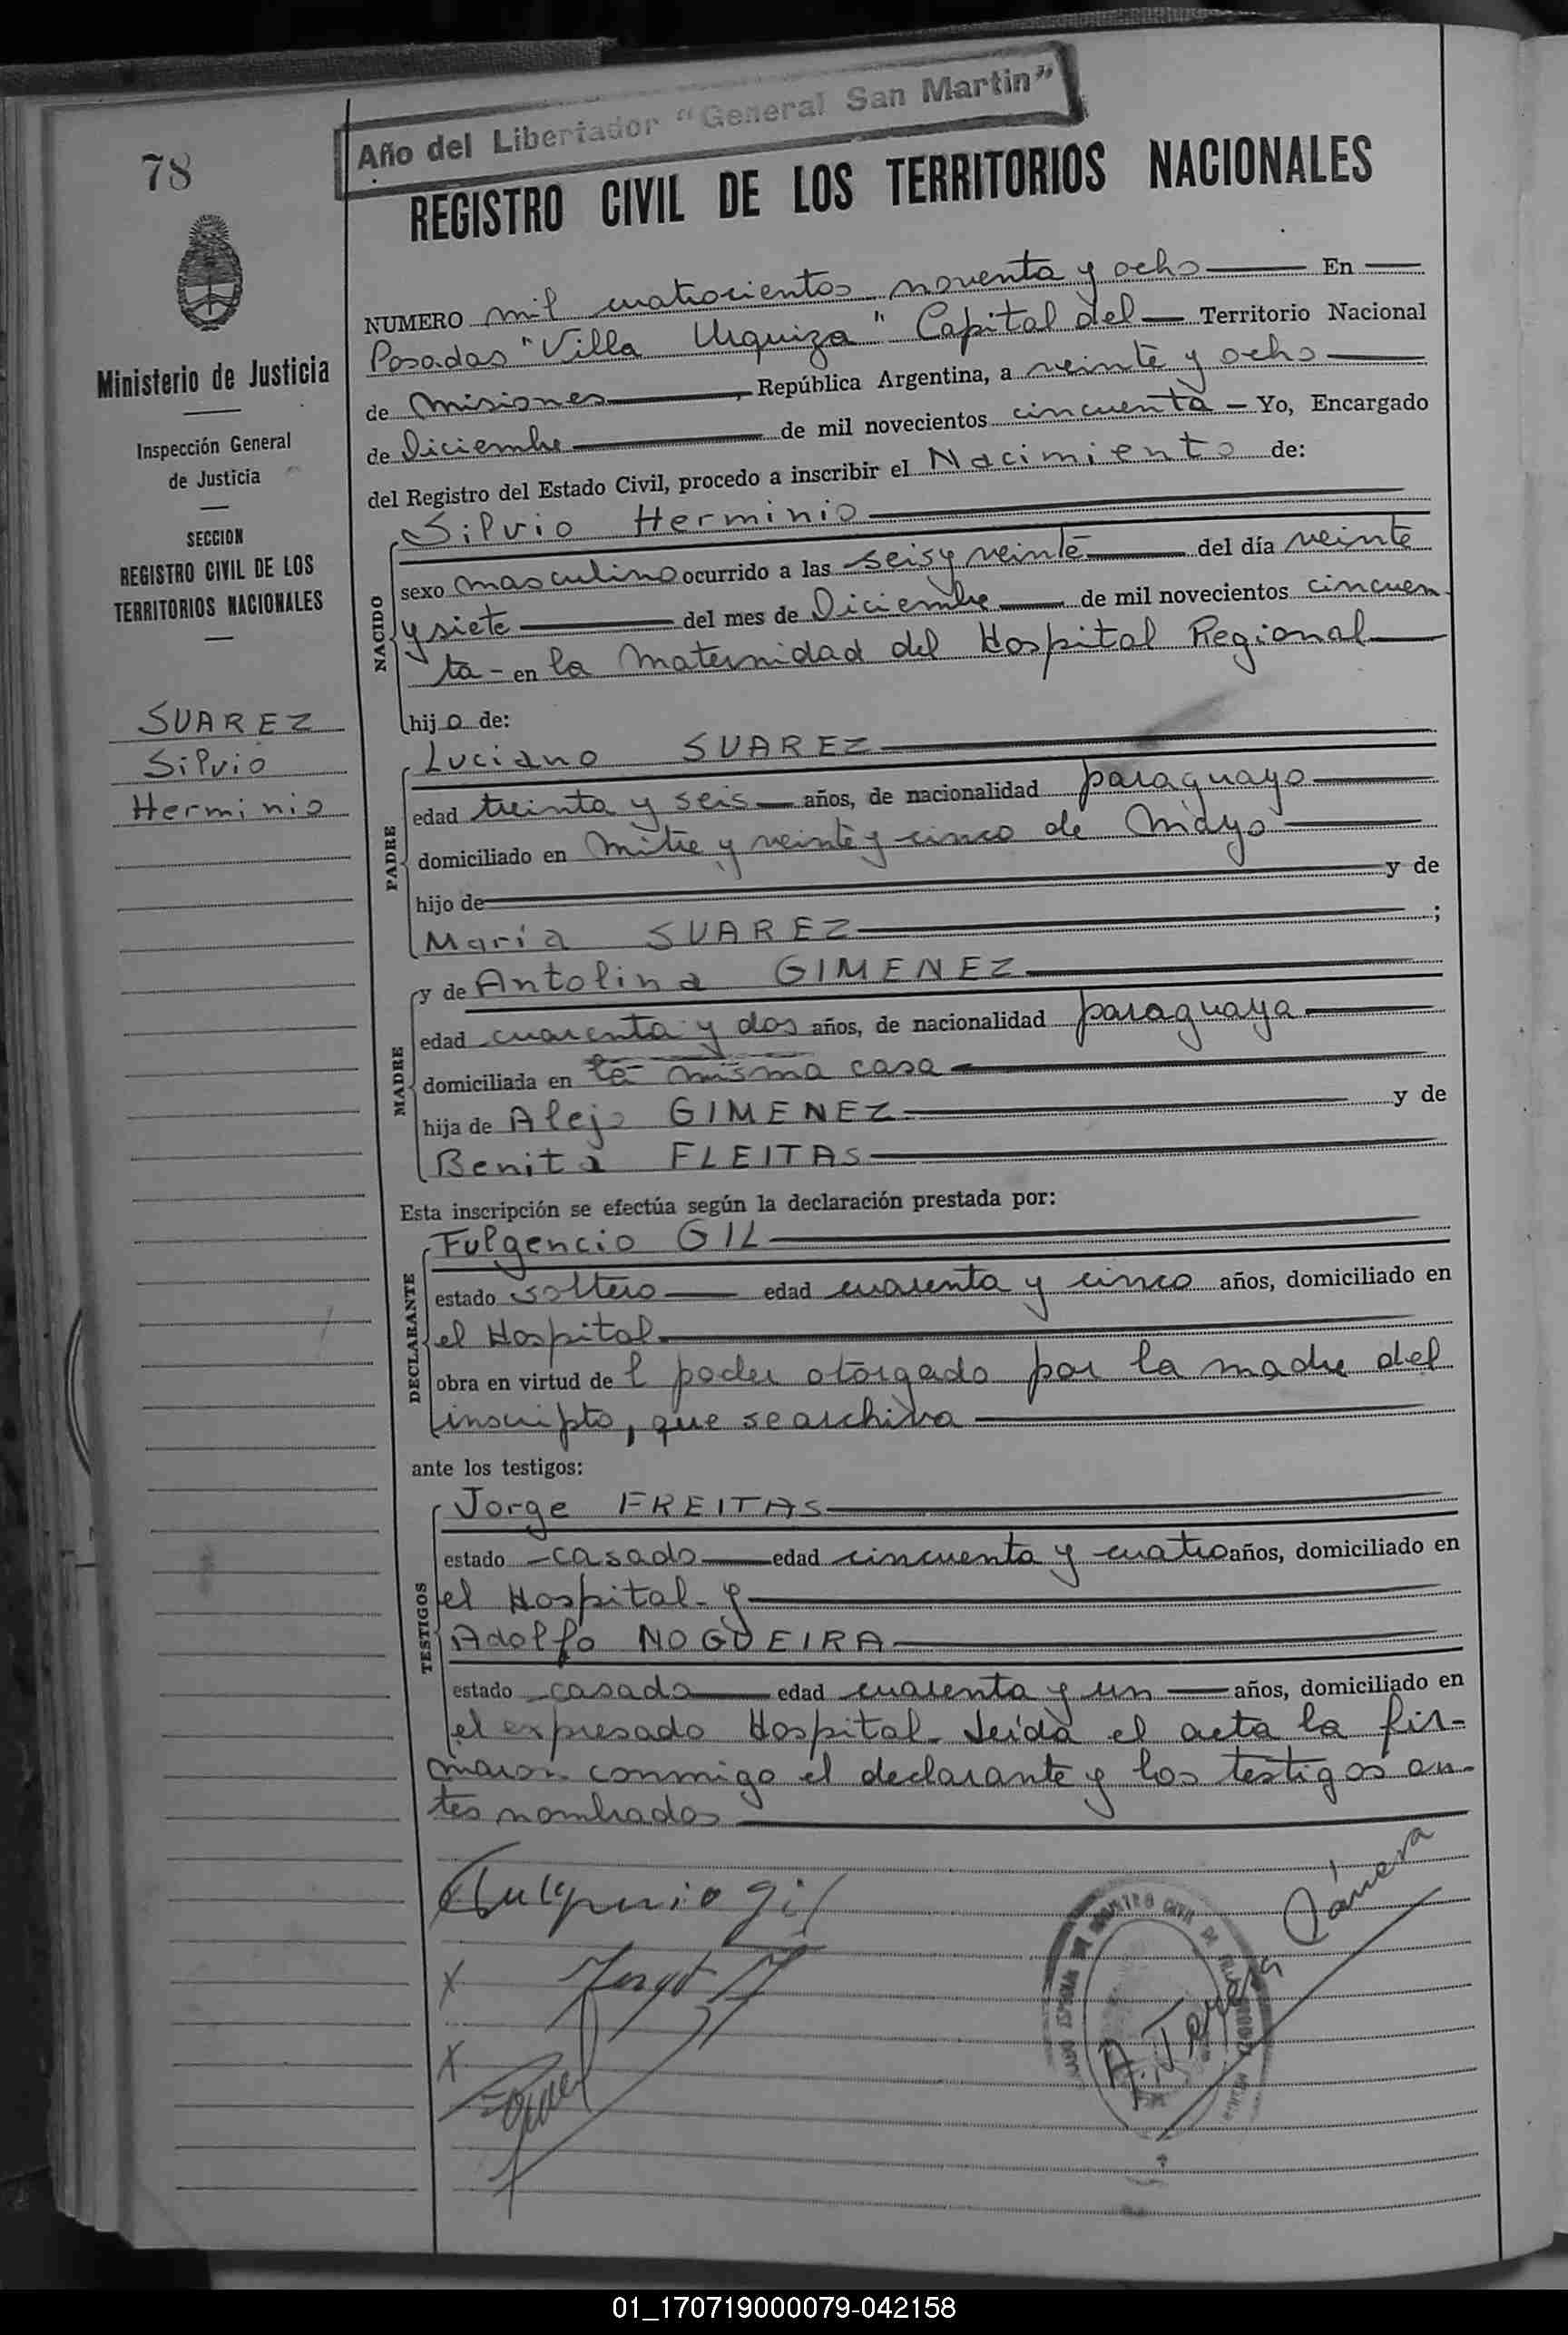 Año del Libertador "General San Martin"
78
REGISTRO CIVIL DE LOS TERRITORIOS NACIONALES
Ministerio de Justicia
Inspección General
de Justicia
SECCION
REGISTRO CIVIL DE LOS
TERRITORIOS NACIONALES
SUAREZ
Silvio
Herminio
NUMERO mil cuatrocientos noventa y ocho En
Posadas "Villa Urquiza" Capital del Territorio Nacional
de Misiones, República Argentina, a veinte y ocho
de Diciembre de mil novecientos cincuenta - Yo, Encargado
del Registro del Estado Civil, procedo a inscribir el Nacimiento de:
NACIDO
Silvio Herminio
sexo masculino ocurrido a las seis y veinte del día veinte
y siete del mes de Diciembre de mil novecientos cincuen
ta - en la Maternidad del Hospital Regional
hijo de:
PADRE
Luciano SUAREZ
edad treinta y seis años, de nacionalidad paraguayo
domiciliado en Mitre y veinte y cinco de Mayo
hijo de y de
María SUAREZ ;
MADRE
y de Antolina GIMENEZ
edad cuarenta y dos años, de nacionalidad paraguaya
domiciliada en la misma casa
hija de Alejo GIMENEZ y de
Benita FLEITAS
Esta inscripción se efectúa según la declaración prestada por:
DECLARANTE
Fulgencio GIL
estado soltero edad cuarenta y cinco años, domiciliado en
el Hospital
obra en virtud de l poder otorgado por la madre del
inscripto, que se archiva
ante los testigos:
TESTIGOS
Jorge FREITAS
estado casado edad cincuenta y cuatro años, domiciliado en
el Hospital - y
Adolfo NOGUEIRA
estado casado edad cuarenta y un años, domiciliado en
el expresado Hospital - Leída el acta la fir-
maron conmigo el declarante y los testigos an-
tes nombrados
Fulgencio Gil
X
X
A. Teresa
01_170719000079-042158